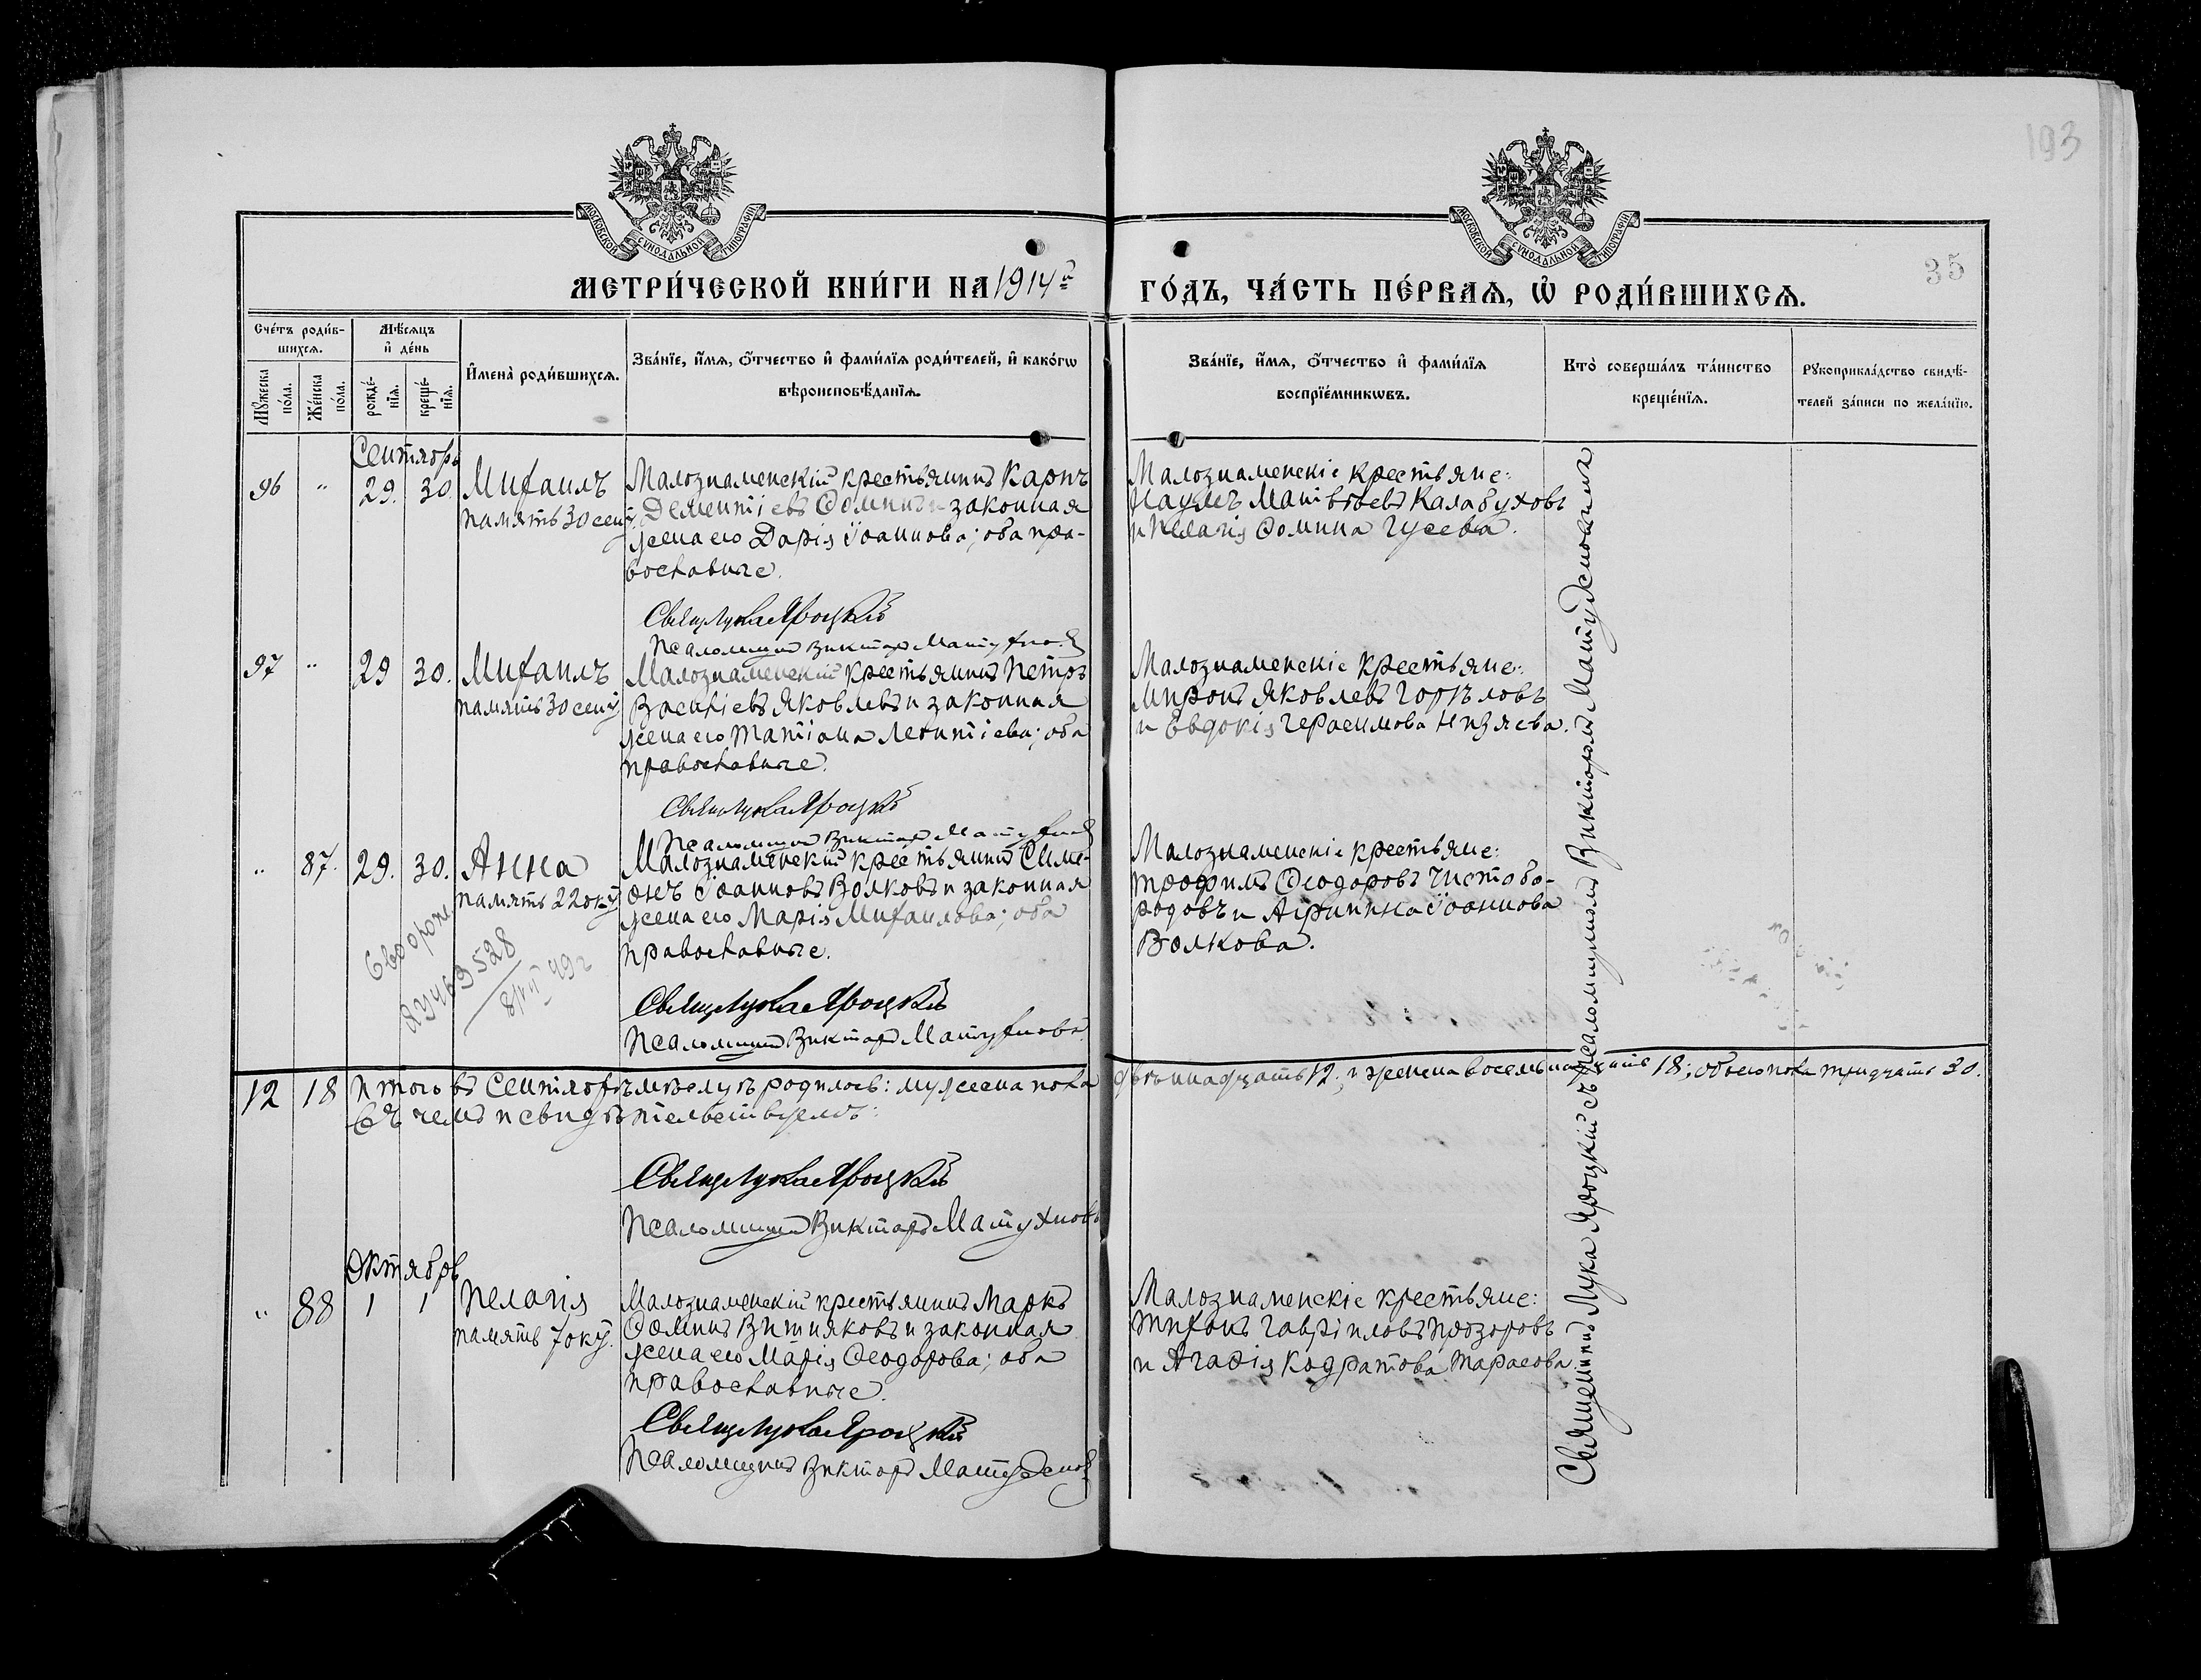 193
МОСКОВСКОЙ СУНОДАЛЬНОЙ ТИПОГРАФІИ
МОСКОВСКОЙ СУНОДАЛЬНОЙ ТИПОГРАФІИ
35
МЕТРИ́ЧЕСКОЙ КНИ́ГИ НА 1914й
ГО́ДЪ, ЧА́СТЬ ПЕ́РВАѦ, Ѡ҆ РОДИ́ВШИХСѦ.
Сче́тъ роди́в-
шихсѧ.
Мꙋ́жеска
по́ла.
Же́нска
по́ла.
Мѣ́сѧцъ
и҆ де́нь
рожде́-
нїѧ.
креще́-
нїѧ.
И҆мена̀ роди́вшихсѧ.
Зва́нїе, и҆́мѧ, ѻ҆́тчество и҆ фами́лїѧ роди́телей, и҆ како́гѡ
вѣроисповѣ́данїѧ.
Зва́нїе, и҆́мѧ, ѻ҆́тчество и҆ фами́лїѧ
воспрїе́мникѡвъ.
Кто̀ соверша́лъ та́инство
креще́нїѧ.
Рꙋкоприкла́дство свидѣ́-
телей за́писи по жела́нїю.
Сентябрь
96 " 29. 30. Михаилъ
память 30 сент.
Малознаменскій крестьянинъ Карпъ
Дементіевъ Ѳоминъ и законная
жена его Дарія Іоаннова; оба пра-
вославные.
Свящ. Лука Яроцкій
Псаломщикъ Викторъ
Малознаменскіе крестьяне:
Наумъ Матвѣевъ Калабуховъ
и Пелагія Ѳомина Гусева.
97 " 29 30. Михаилъ
память 30 сент.
Малознаменскій крестьянинъ Петръ
Василіевъ Яковлевъ и законная
жена его Татіана Леонтіева; оба
православные.
Свящ. Лука Яроцкій
Псаломщикъ Викторъ
Малознаменскіе крестьяне:
Миронъ Яковлевъ Горѣловъ
и Евдокія Герасимова Низяева.
" 87. 29. 30. Анна
память 22 окт.
Малознаменскій крестьянинъ Симе-
онъ Іоанновъ Волковъ и законная
жена его Марія Михаилова; оба
православные.
Свящ. Лука Яроцкій
Псаломщикъ Викторъ
Малознаменскіе крестьяне:
Трофимъ Ѳеодоровъ Чистобо-
родовъ и Агриппина Іоаннова
Волкова.
12 18 Итого въ Сентябрѣ мѣсяцѣ родилось: мужескаго пола двѣнадцать 12, и женска восемьнадцать 18; обоего пола тридцать 30.
Въ чемъ и свидѣтельствуемъ:
Свящ. Лука Яроцкій
Псаломщикъ Викторъ
Октябрь
" 88 1 1 Пелагія
память 7 окт.
Малознаменскій крестьянинъ Маркъ
Ѳоминъ Витняковъ и законная
жена его Марія Ѳеодорова; оба
православные.
Свящ. Лука Яроцкій
Псаломщикъ Викторъ
Малознаменскіе крестьяне:
Тихонъ Гавріиловъ Прозоровъ
и Агаѳія Кодратова Тарасова
Священникъ Лука Яроцкій съ псаломщикомъ Викторомъ